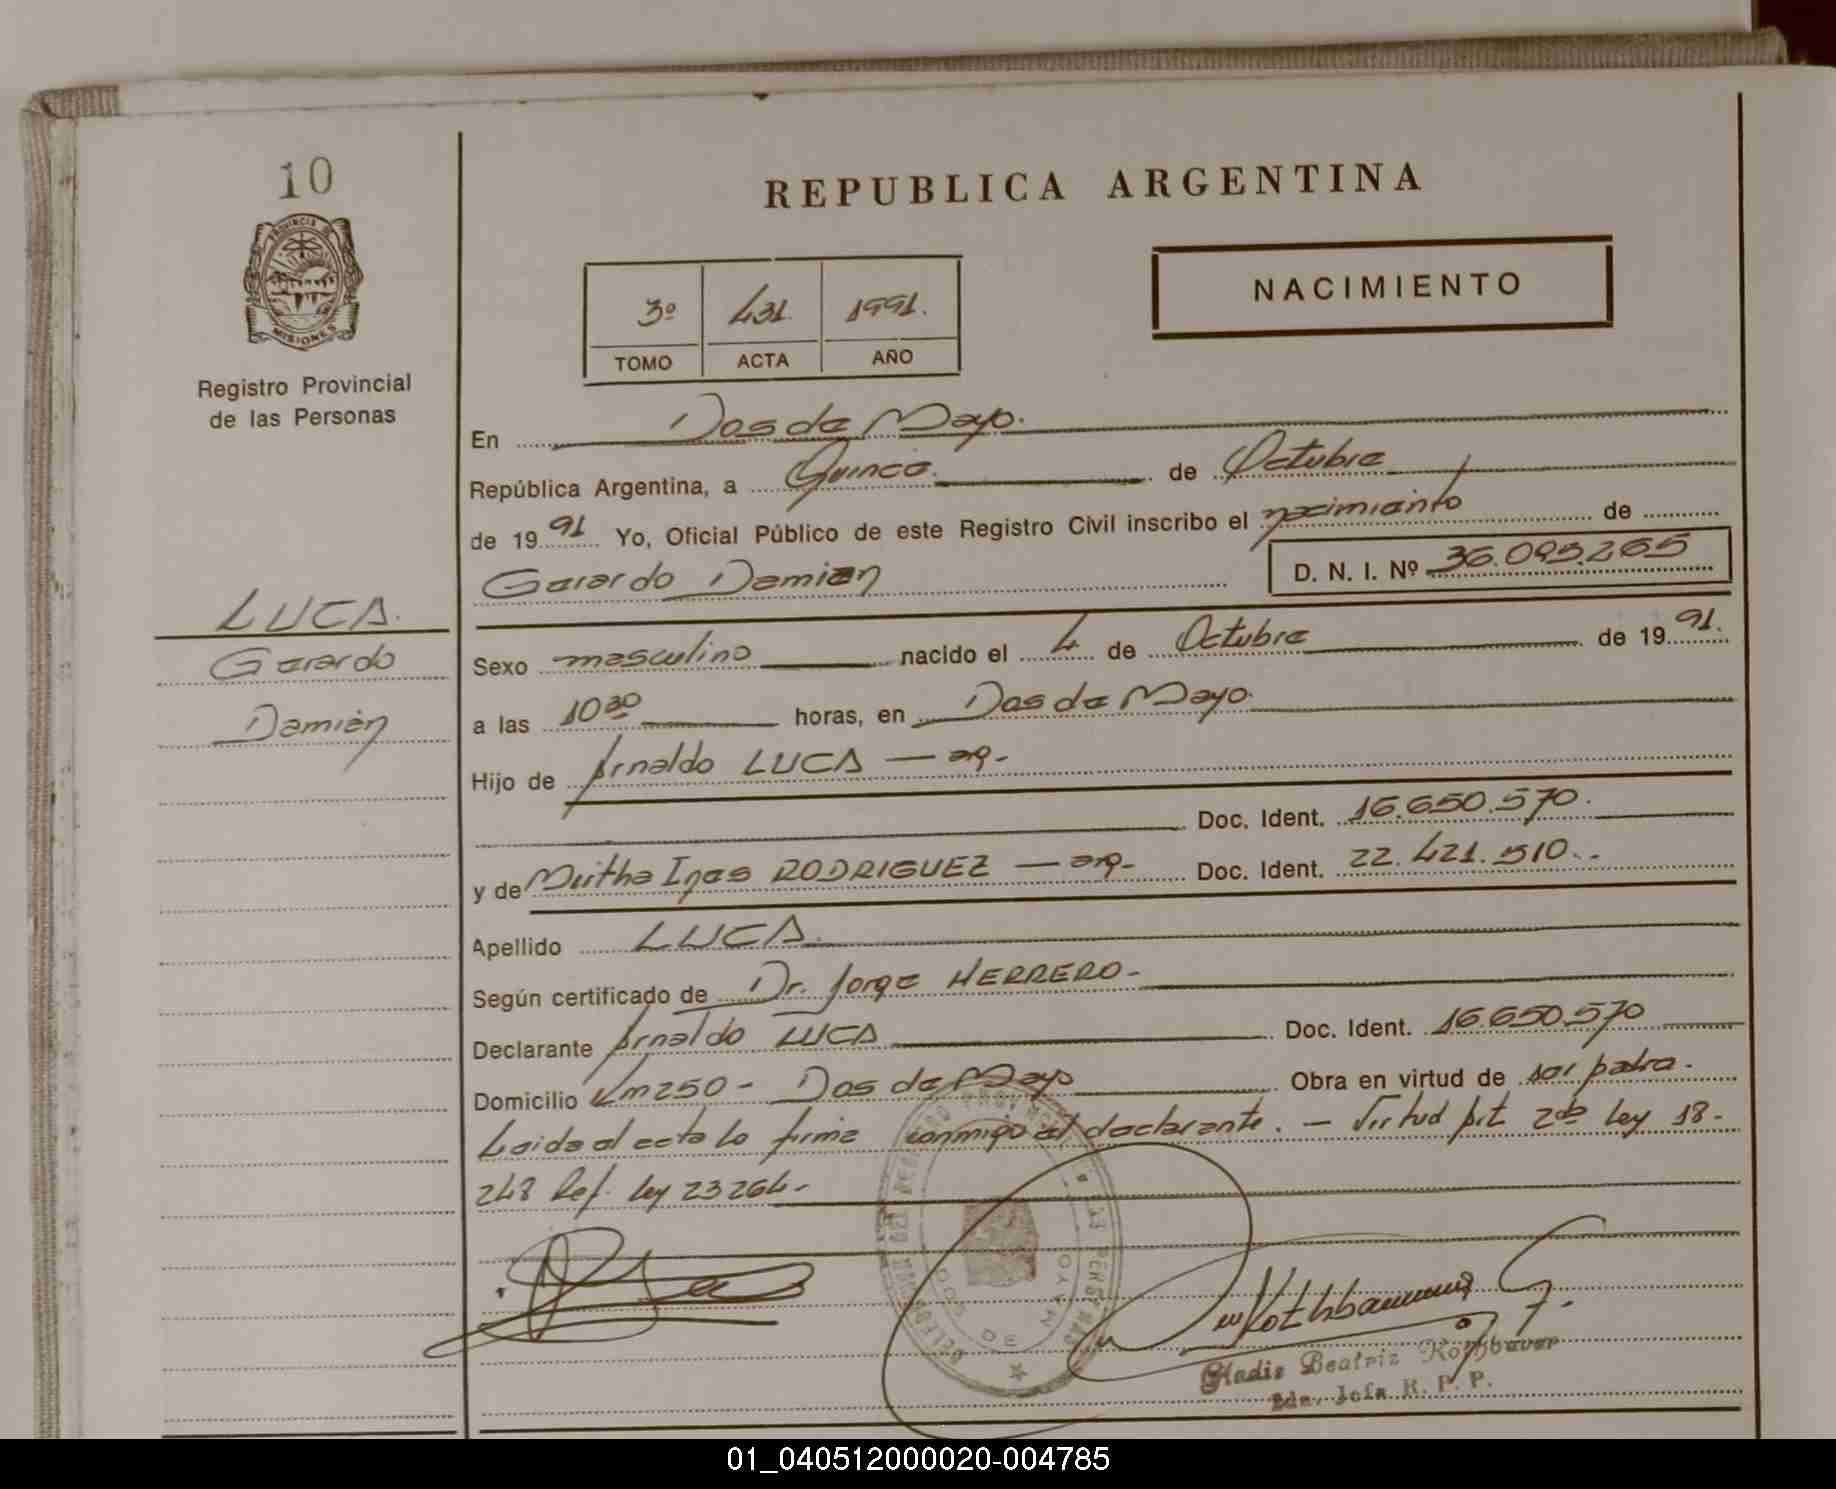 10
PROVINCIA DE
MISIONES
Registro Provincial
de las Personas
LUCA.
Gerardo
Damián
REPUBLICA ARGENTINA
3º 431. 1991.
TOMO ACTA AÑO
NACIMIENTO
En Dos de Mayo.
República Argentina, a Quince. de Octubre
de 1991 Yo, Oficial Público de este Registro Civil inscribo el nacimiento de
Gerardo Damian D. N. I. Nº 36.095.265
Sexo masculino nacido el 4 de Octubre de 1991.
a las 10 30 horas, en Dos de Mayo.
Hijo de Arnaldo LUCA — arg-
Doc. Ident. 16.650.570.
y de Mirtha Ines RODRIGUEZ — arg- Doc. Ident. 22.421.510..-
Apellido LUCA.
Según certificado de Dr. Jorge HERRERO-
Declarante Arnaldo LUCA Doc. Ident. 16.650.570
Domicilio Km 250 - Dos de Mayo Obra en virtud de ser padre.
Leida el acta la firma conmigo el declarante. — Virtud Art 2do Ley 18-
248 Ref. ley 23264-
DOS DE MAYO
Gladis Beatriz Röthbauer
R. P. P.
01_040512000020-004785